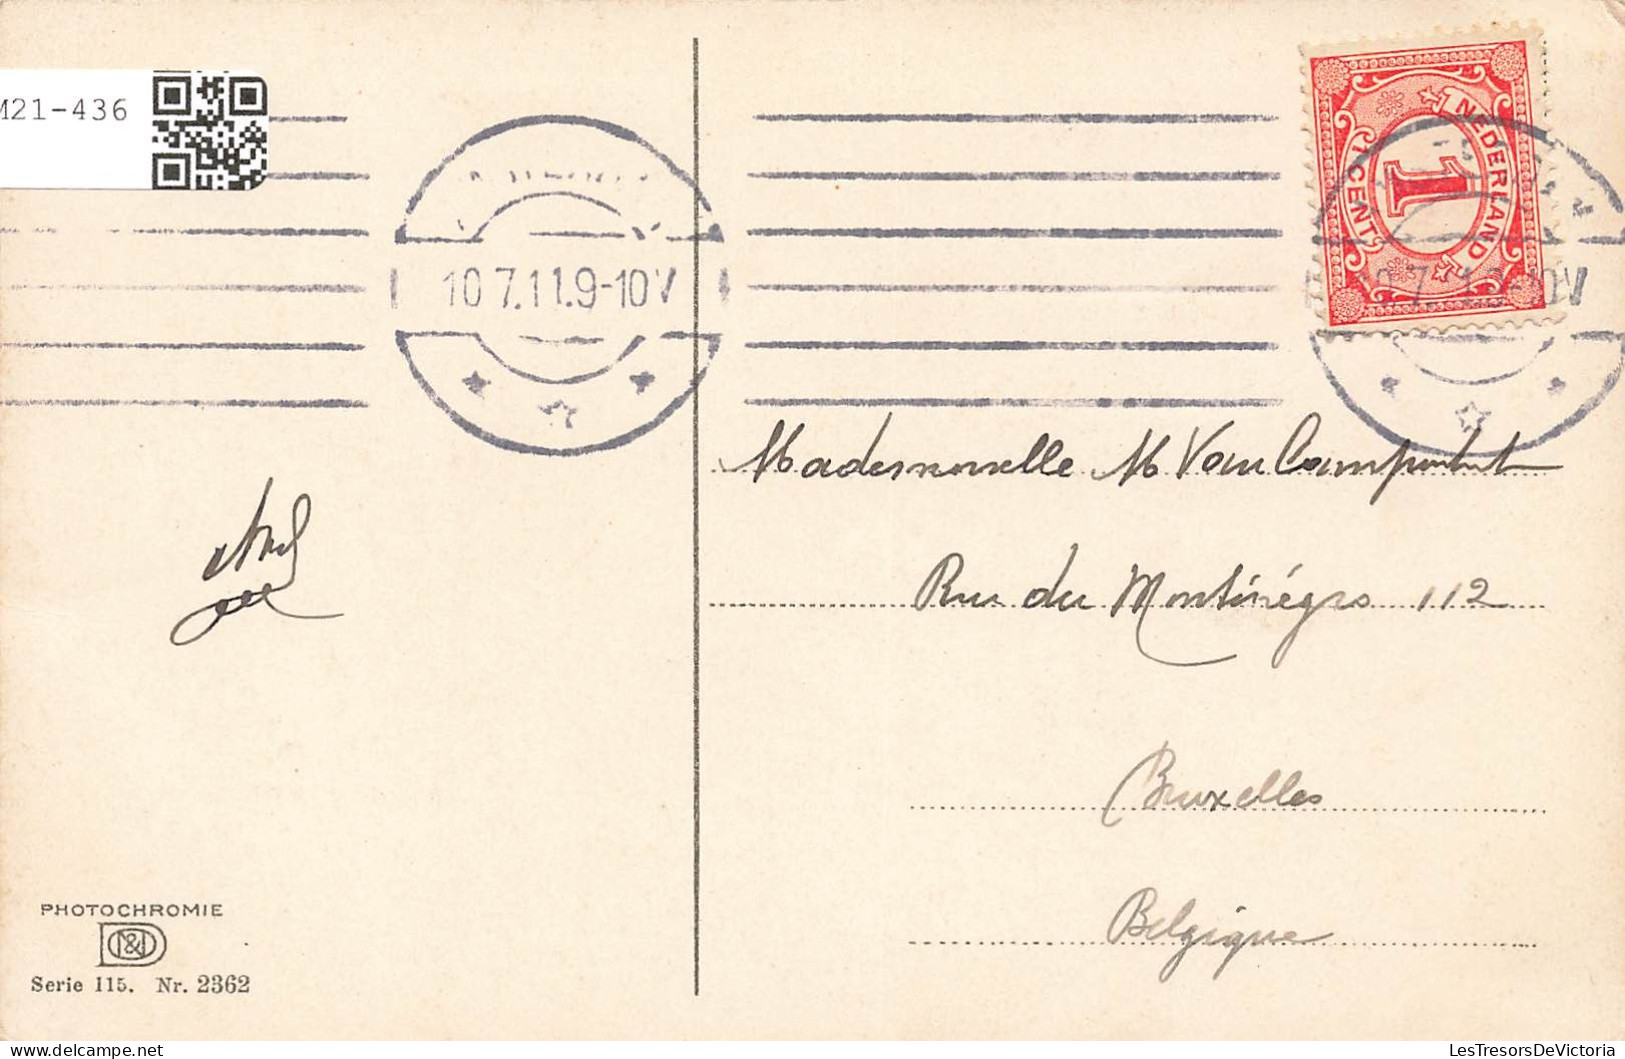 M21-436
NEDERLAND
1
1 CENT
10 7.11.9-10V
10 7.11.9-10V
Mademoiselle M Van Campenhout
Rue du Monténégro 112
Bruxelles
Belgique
PHOTOCHROMIE
Serie 115. Nr. 2362
LesTresorsDeVictoria